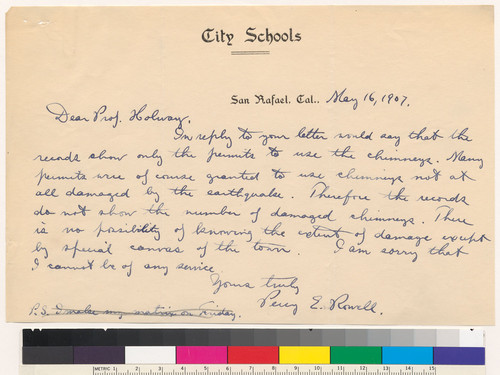 City Schools
San Rafael, Cal., May 16, 1907.
Dear Prof. Holway,
In reply to your letter would say that the
records show only the permits to use the chimneys. Many
permits were of course granted to use chimneys not at
all damaged by the earthquake. Therefore the records
do not show the number of damaged chimneys. There
is no posibility of knowing the extent of damage except
by special canvas of the town. I am sorry that
I cannot be of any service.
Yours truly
Percy E. Rowell.
P.S. I make my on Friday.
METRIC 1 2 3 4 5 6 7 8 9 10 11 12 13 14 15